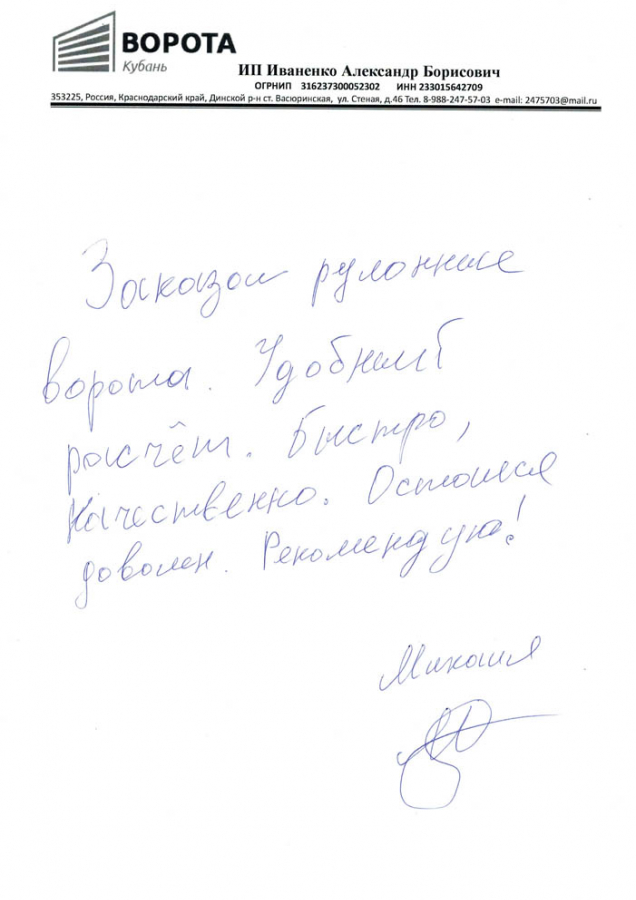 ВОРОТА
Кубань
ИП Иваненко Александр Борисович
ОГРНИП 316237300052302 ИНН 233015642709
353225, Россия, Краснодарский край, Динской р-н ст. Васюринская, ул. Степная, д.46 Тел. 8-988-247-57-03 e-mail: 2475703@mail.ru
Заказал рулонные
ворота. Удобный
расчёт. Быстро,
качественно. Остался
доволен. Рекомендую!
Михаил